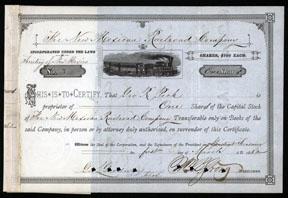 The New Mexican Railroad Company
INCORPORATED UNDER THE LAWS
SHARES, $100 EACH.
Territory of New Mexico
No.
THIS IS TO CERTIFY, That Geo. R. Peck
proprietor of One Share of the Capital Stock
of The New Mexican Railroad Company Transferable only on Books of the
said Company, in person or by attorney duly authorized, on surrender of this Certificate.
Witness the Seal of the Corporation, and the Signatures of the President and Assistant Treasurer
this first day of March